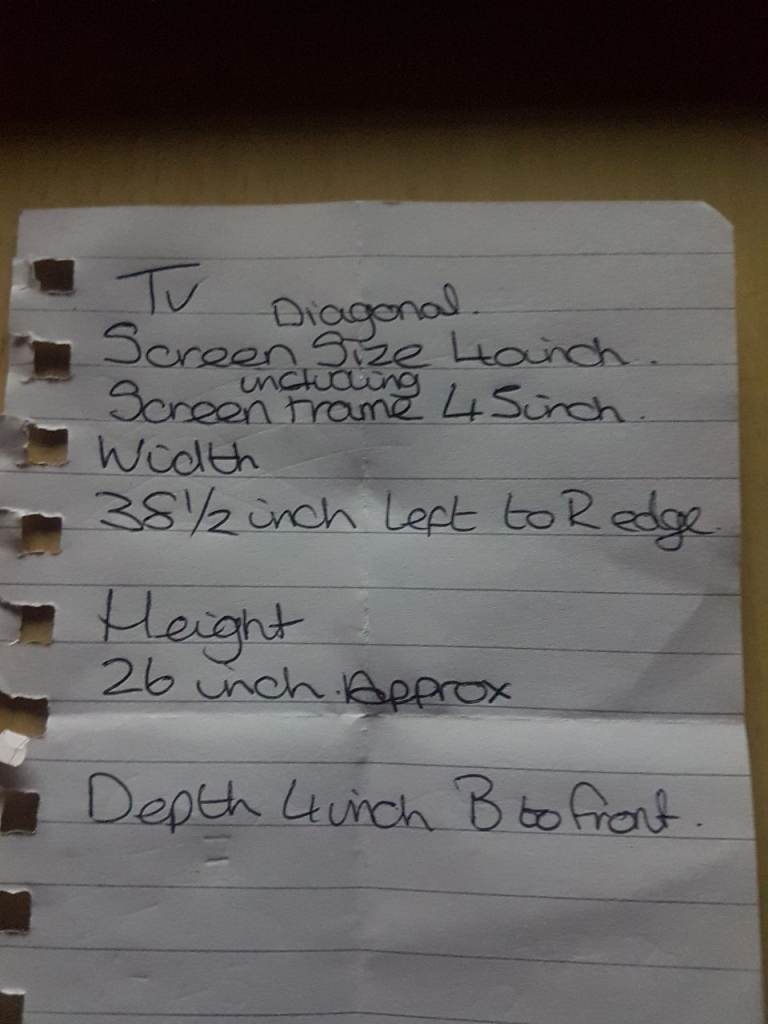 TV
Diagonal.
Screen Size 40inch.
including
Screen frame 45inch.
Width
38 1/2 inch Left to R edge.
Height
26 inch. Approx
Depth 4inch B to front.